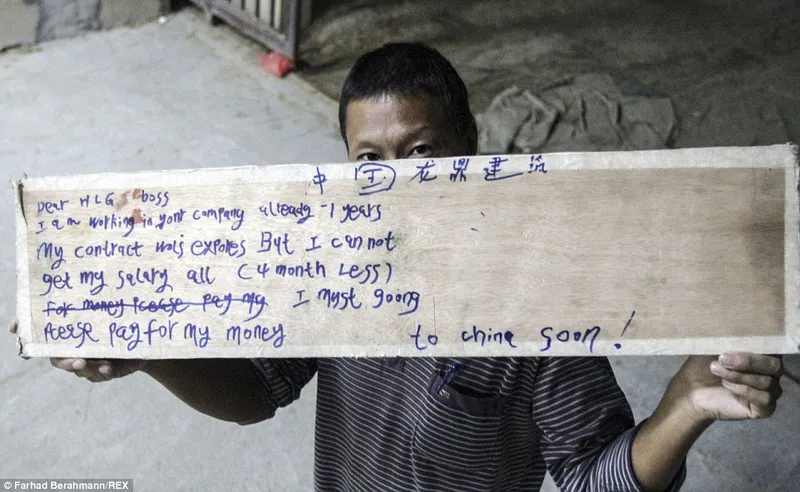 中国龙鼎建筑
Dear HLG boss
I am working in your company already 1 years
My contract was expores But I can not
get my salary all (4 month Less)
for money Please pay my I must goong
Please pay for my money to china soon!
© Farhad Berahmann/REX